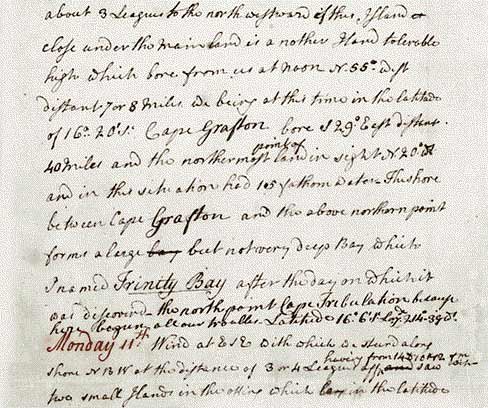 about 3 Leagues to the northwestward of this Island &
close under the Main land is a nother Island tolerable
high which bore from us at noon N. 55° West
distant 7 or 8 Miles we being at this time in the latitude
of 16°.. 20' S. Cape Grafton bore S 29° East distant.
40 Miles and the northermost point of land in sight N. 20° W
and in this situation had 15 fathom Water The shore
between Cape Grafton and the above northern point
forms a large bay but not very deep Bay which
I named Trinity Bay after the day on which it
was discoverd the north point Cape Tribulation because
here began all our troubles. Latitude 16°.. 6' S.
Monday 11th Wind at ESE with which we steer'd along
shore N B W at the distance of 3 or 4 Leagues off having from 14 to 10 & 12 fm saw
two small Islands in the offing which lay in the latitude